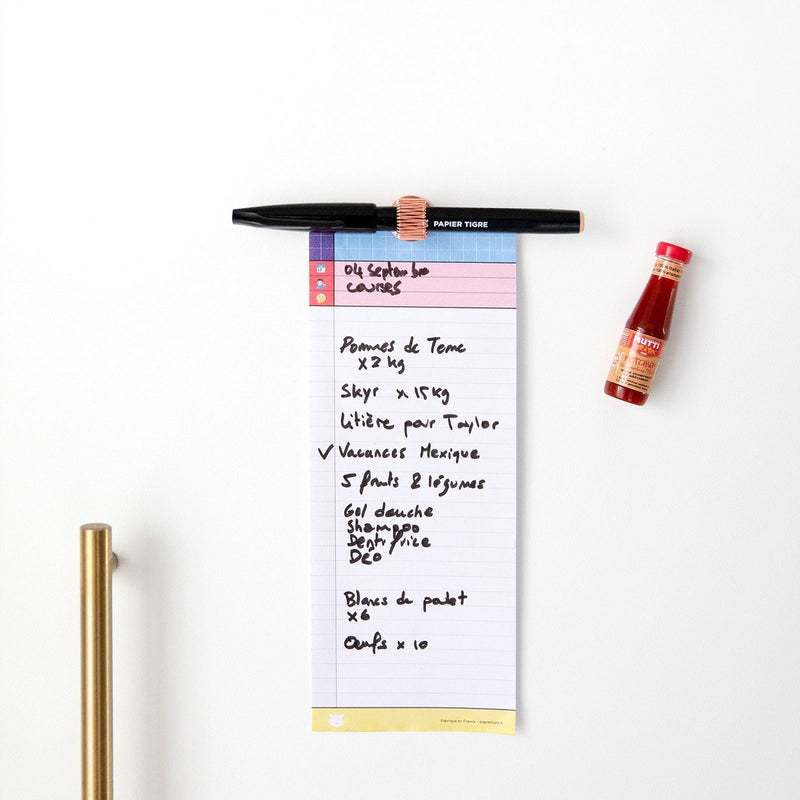 PAPIER TIGRE
04 Septembre
courses
Pommes de Terre
x 2 kg
Skyr x 15 kg
Litière pour Taylor
✓ Vacances Mexique
5 fruits & légumes
Gel douche
Shampoo
Dentifrice
Déo
Blancs de poulet
x6
Oeufs x 10
Fabriqué en France - papiertigre.fr
MUTTI